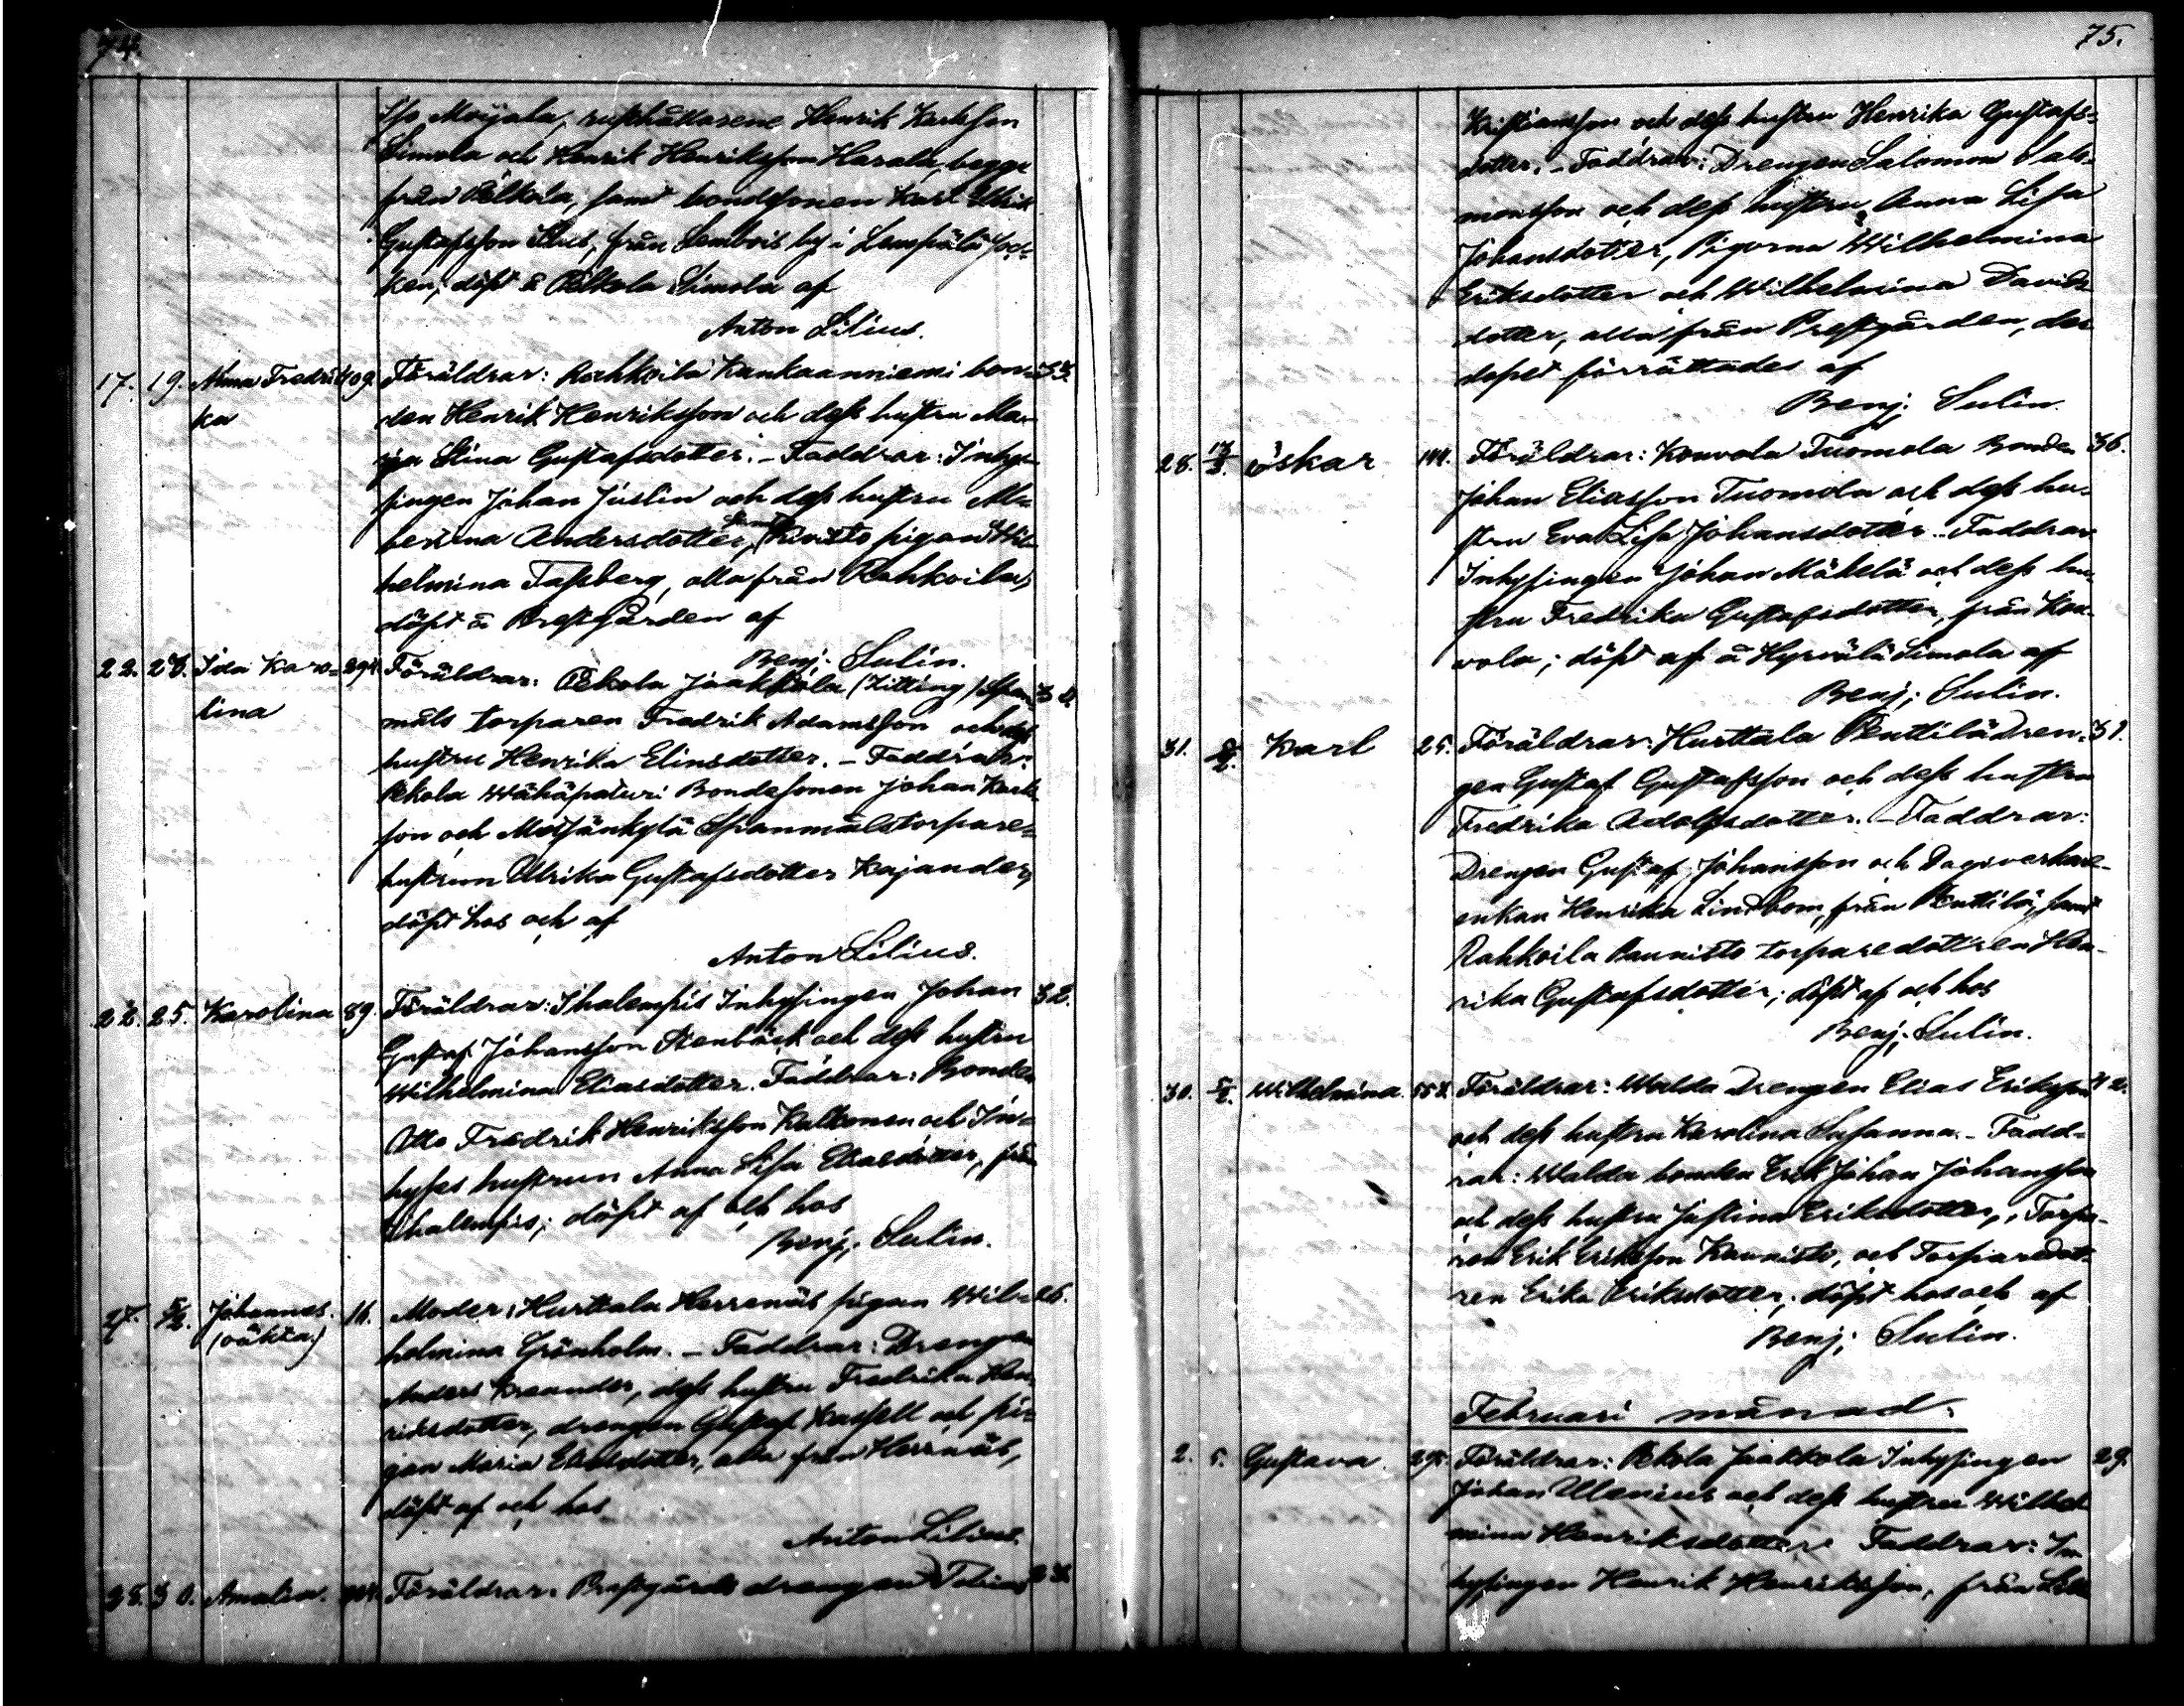 74.
Iso Moijala, rusthållarene Henrik Karlsson
Simola och Henrik Henriksson Harala, begge
från Pälkola, samt bondesonen Karl Ulrik
Gustafsson från Sembois by i Lempälä Sock-
ken; döpt å Pälkola Simola af
Anton Lilius.
17. 19. Alma Fredri- 409. Föräldrar: Rahkoila Kankaanniemi bon- 33.
ka den Henrik Henriksson och dess hustru Ma-
ja Stina Gustafsdotter. - Faddrar: Inhy-
singen Johan Juslin och dess hustru Al-
bertina Andersdotter, samt Kivistö pigan Wil-
helmina Tassberg, alla från Rahkoila,
döpt å Prestgården af
Benj. Sulin.
22. 23. Ida Karo- 294. Föräldrar: Pekola Jaakkola (Kitting) Span-
lina måls torparen Fredrik Adamsson och dess
hustru Henrika Elinsdotter. - Faddrar:
Pekola Wähäpaturi Bondesonen Johan Karls-
son och Metsänkylä Spanmålstorpare-
hustrun Ulrika Gustafsdotter Kajander,
döpt hos och af
Anton Lilius.
22. 25. Karolina 89. Föräldrar: Ihalempis Inhysingen Johan 32.
Gustaf Johansson Stenbäck och dess hustru
Wilhelmina Eliasdotter. Faddrar: Bonden
Otto Fredrik Henriksson Kulkonen och In-
hyses hustrun Anna Lisa Eliasdotter, från
Ihalempis; döpt af och hos
Benj. Sulin.
27. 5/2. Johannes. 16. Moder: Hurttala Herrenäs pigan Wil- 26.
(oäkta) helmina Grönholm. - Faddrar: Drengen
Anders Kreander, dess hustru Fredrika Hen-
riksdotter, drengen Gustaf Kassell och pi-
gan Maria Eliasdotter, alla från Herrnäs,
döpt af och hos
Anton Lilius.
28. 30. Amalia. Föräldrar: Prestgårds drengen
75.
Kristiansson och dess hustru Henrika Gustafs-
dotter. - Faddrar: Drengen Salomon Salo-
monsson och dess hustru Anna Lisa
Johansdotter, Pigorna Wilhelmina
Eriksdotter och Wilhelmina Davids-
dotter, alla från Prestgården, der
dopet förrättades af
Benj. Sulin.
28. 17/3. Oskar 144. Föräldrar: Konvola Tuomola Bonden 36.
Johan Eliasson Tuomola och dess hu-
stru Eva Lisa Johansdotter. Faddrar
Inhysingen Johan Mäkelä och dess hu-
stru Fredrika Gustafsdotter, från Kon-
vola; döpt af å Hyrvälä Simola af
Benj; Sulin.
31. 2/2. Karl 25. Föräldrar: Hurttala Penttilä Dren- 31.
gen Gustaf Gustafsson och dess hustru
Fredrika Adolfsdotter. - Faddrar:
Drengen Gustaf Johansson och Dagsverkare-
enkan Henrika Lindbom, från Penttilä, samt
Rahkoila Raunisto torparedottren Hen-
rika Gustafsdotter; döpt af och hos
Benj; Sulin.
30. 5/2. Wilhelmina. Föräldrar: Walda Drengen Elias Eriksson
och dess hustru Karolina Susanna. - Fadd-
rar: Walda bonden Erik Johan Johansson
och dess hustru Justina Eriksdotter, Torpa-
ren Erik Eriksson Raunisto, och Torparedott-
ren Erika Eriksdotter; döpt hos och af
Benj; Sulin.
Februari månad.
2. 5. Gustava. 295. Föräldrar: Pekola Jaakkola Inhysingen 29.
Johan Ulenius och dess hustru Wilhel-
mina Henriksdotter Faddrar: In-
hysingen Henrik Henriksson, från